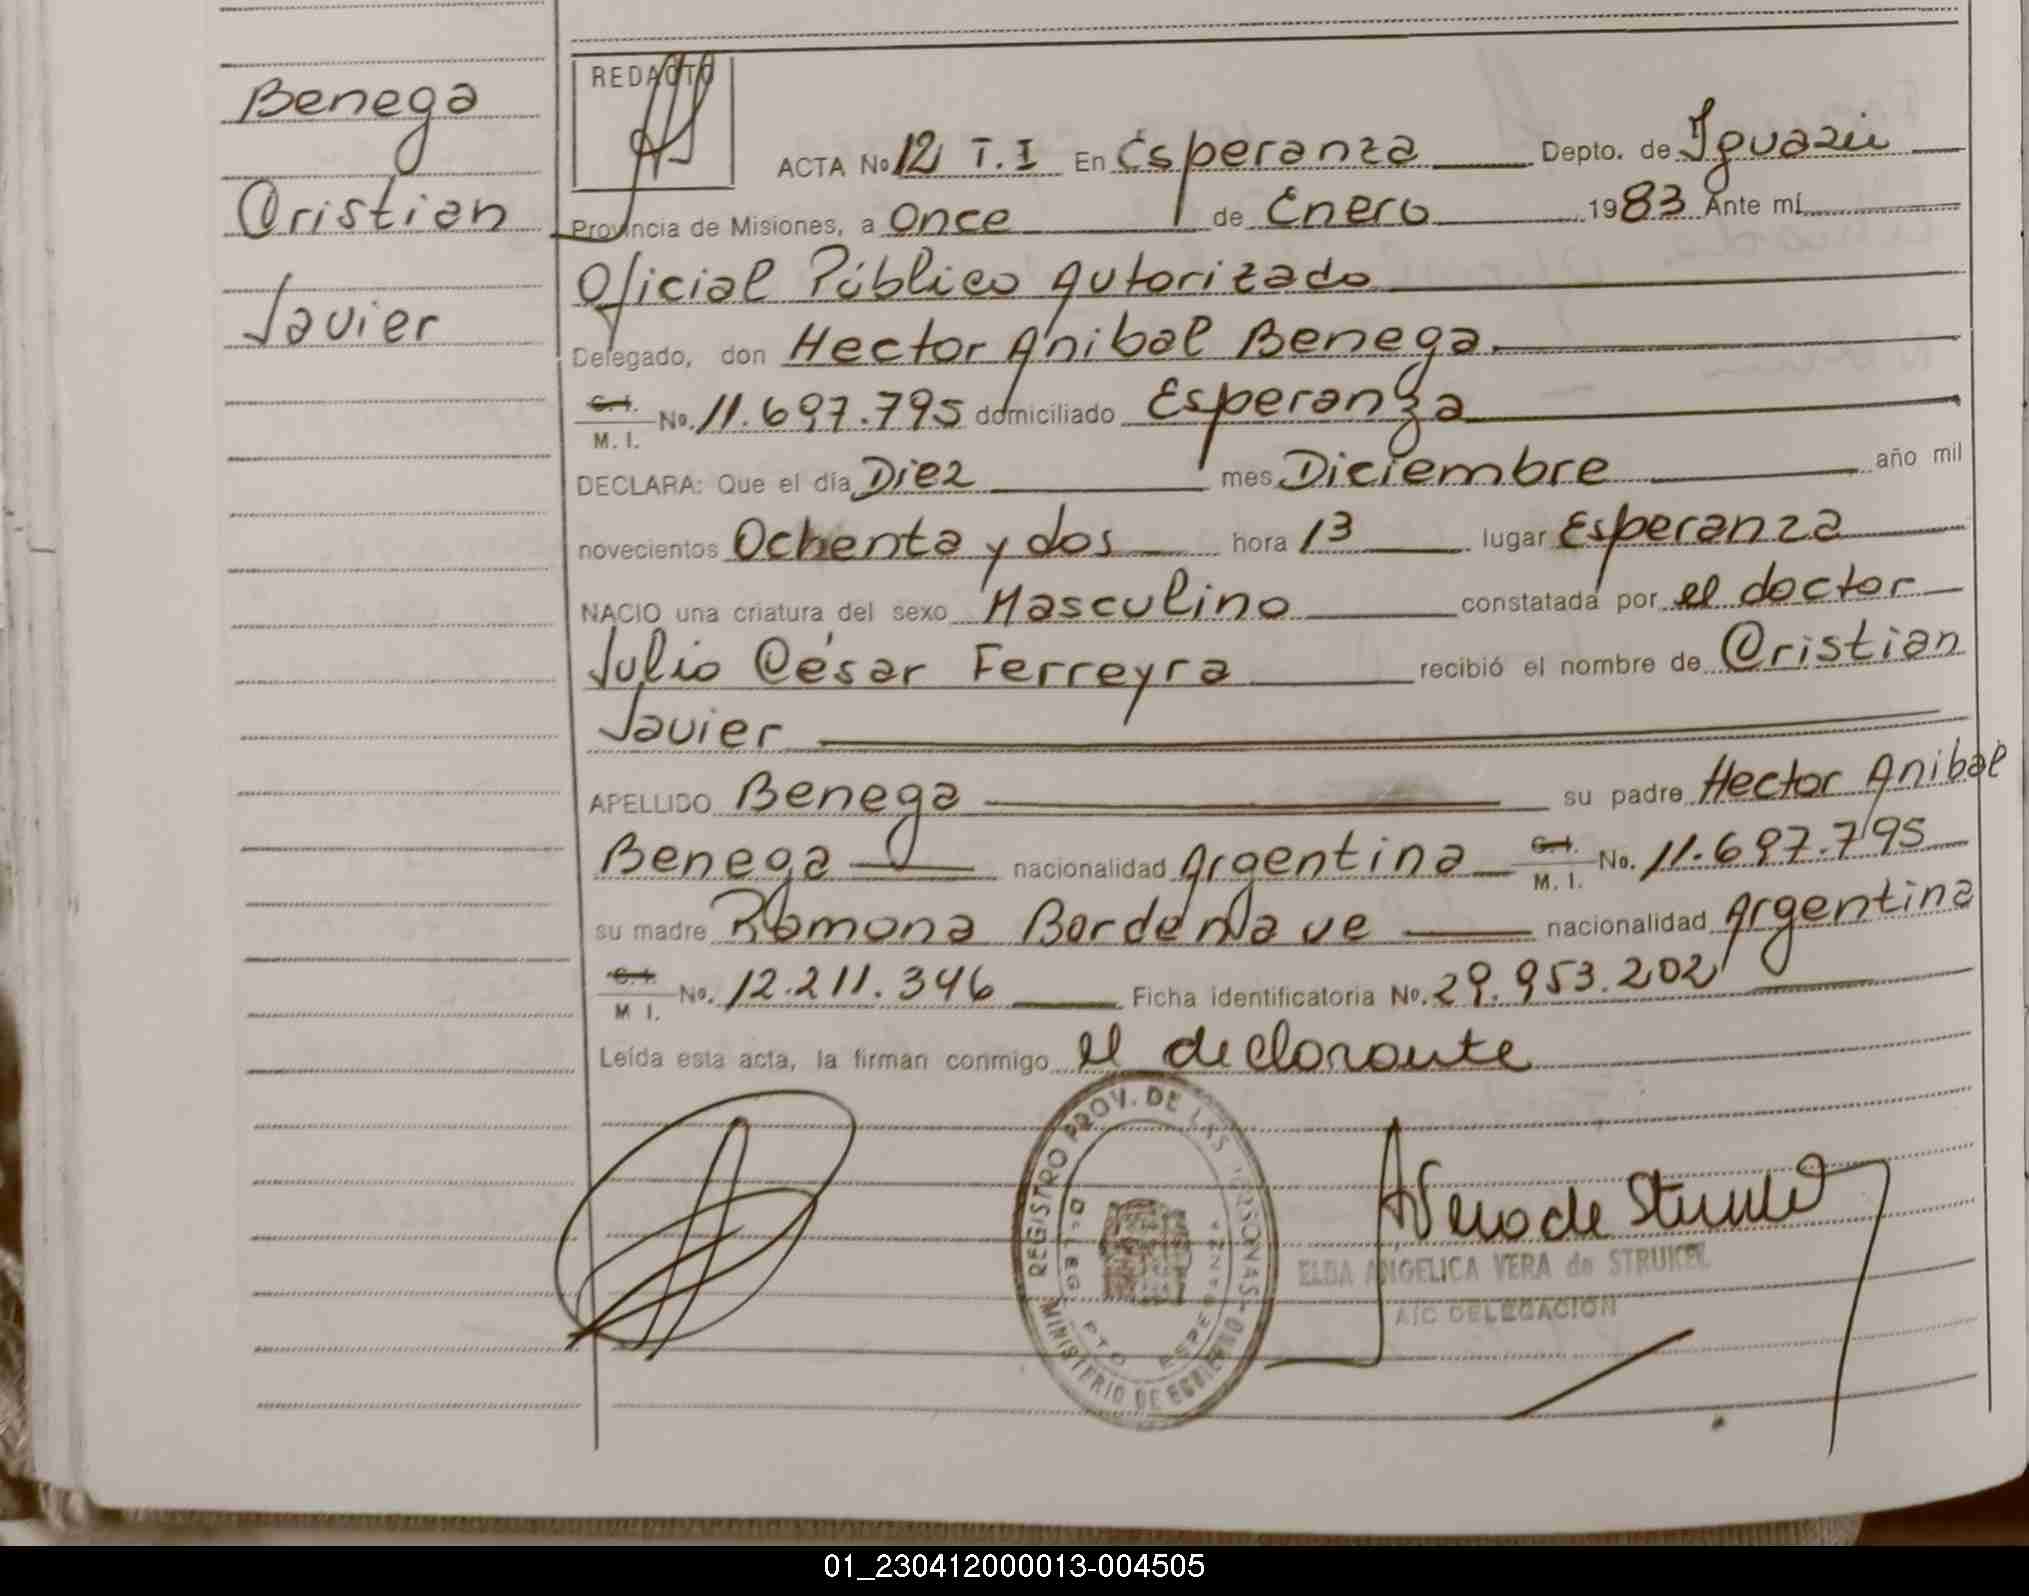 Benega
Cristian
Javier
REDACTO
ACTA No 12 T.I En Esperanza Depto. de Iguazú
Provincia de Misiones, a Once de Enero 1983 Ante mí
Oficial Público Autorizado
Delegado, don Hector Anibal Benega
C.I. M. I. No. 11.697.795 domiciliado Esperanza
DECLARA: Que el día Diez mes Diciembre año mil
novecientos Ochenta y dos hora 13 lugar Esperanza
NACIO una criatura del sexo Masculino constatada por el doctor
Julio César Ferreyra recibió el nombre de Cristian
Javier
APELLIDO Benega su padre Hector Anibal
Benega nacionalidad Argentina C.I. M. I. No. 11.697.795
su madre Ramona Bordenave nacionalidad Argentina
C.I. M I. No. 12.211.346 Ficha identificatoria No. 29.953.202
Leída esta acta, la firman conmigo el declarante
REGISTRO PROV. DE LAS PERSONAS
MINISTERIO DE GOBIERNO
A Vera de Strukel
ELDA ANGELICA VERA de STRUKEL
A/C DELEGACION
01_230412000013-004505